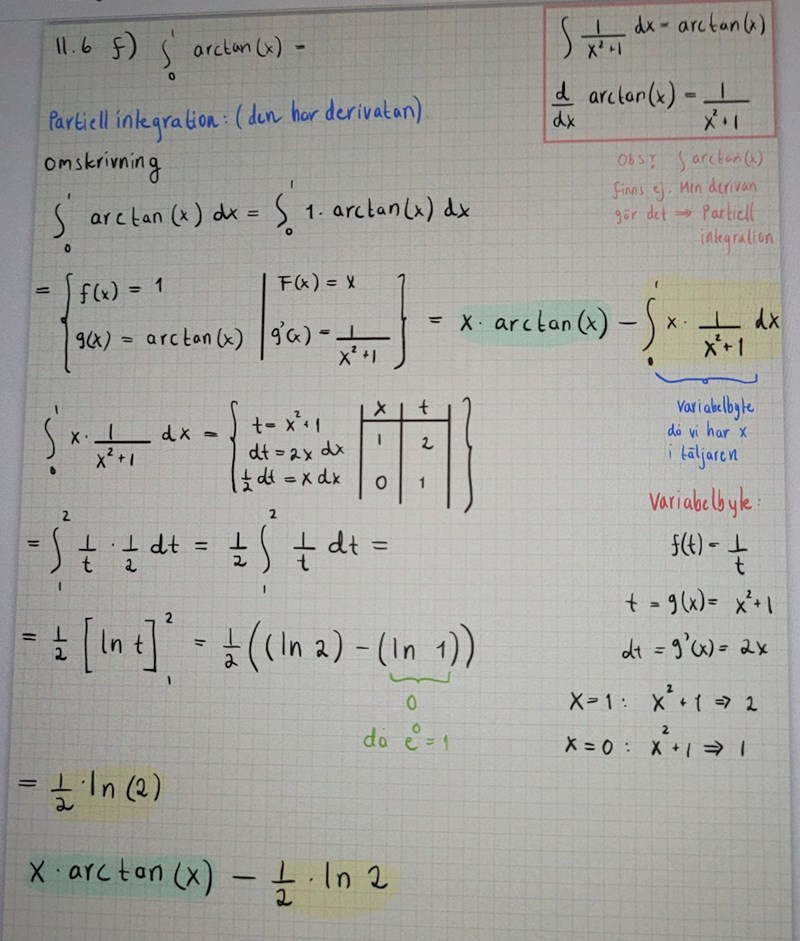 11.6 f) ∫₀¹ arctan(x) =
∫ 1/(x²+1) dx = arctan(x)
d/dx arctan(x) = 1/(x²+1)
Partiell integration: (den har derivatan)
omskrivning
Obs! ∫ arctan(x)
finns ej. Men derivan
gör det ⇒ Partiell
integration
∫₀¹ arctan(x) dx = ∫₀¹ 1 · arctan(x) dx
= { f(x) = 1 | F(x) = x
g(x) = arctan(x) | g'(x) = 1/(x²+1) } = x · arctan(x) − ∫₀¹ x · 1/(x²+1) dx
variabelbyte
då vi har x
i täljaren
∫₀¹ x · 1/(x²+1) dx = { t = x²+1
dt = 2x dx
½ dt = x dx
x | t
1 | 2
0 | 1 }
Variabelbyte:
f(t) = 1/t
t = g(x) = x²+1
dt = g'(x) = 2x
x=1: x²+1 ⇒ 2
x=0: x²+1 ⇒ 1
= ∫₁² 1/t · 1/2 dt = 1/2 ∫₁² 1/t dt =
= 1/2 [ln t]₁² = 1/2 ((ln 2) − (ln 1))
0
då e⁰ = 1
= 1/2 · ln(2)
x · arctan(x) − 1/2 · ln 2